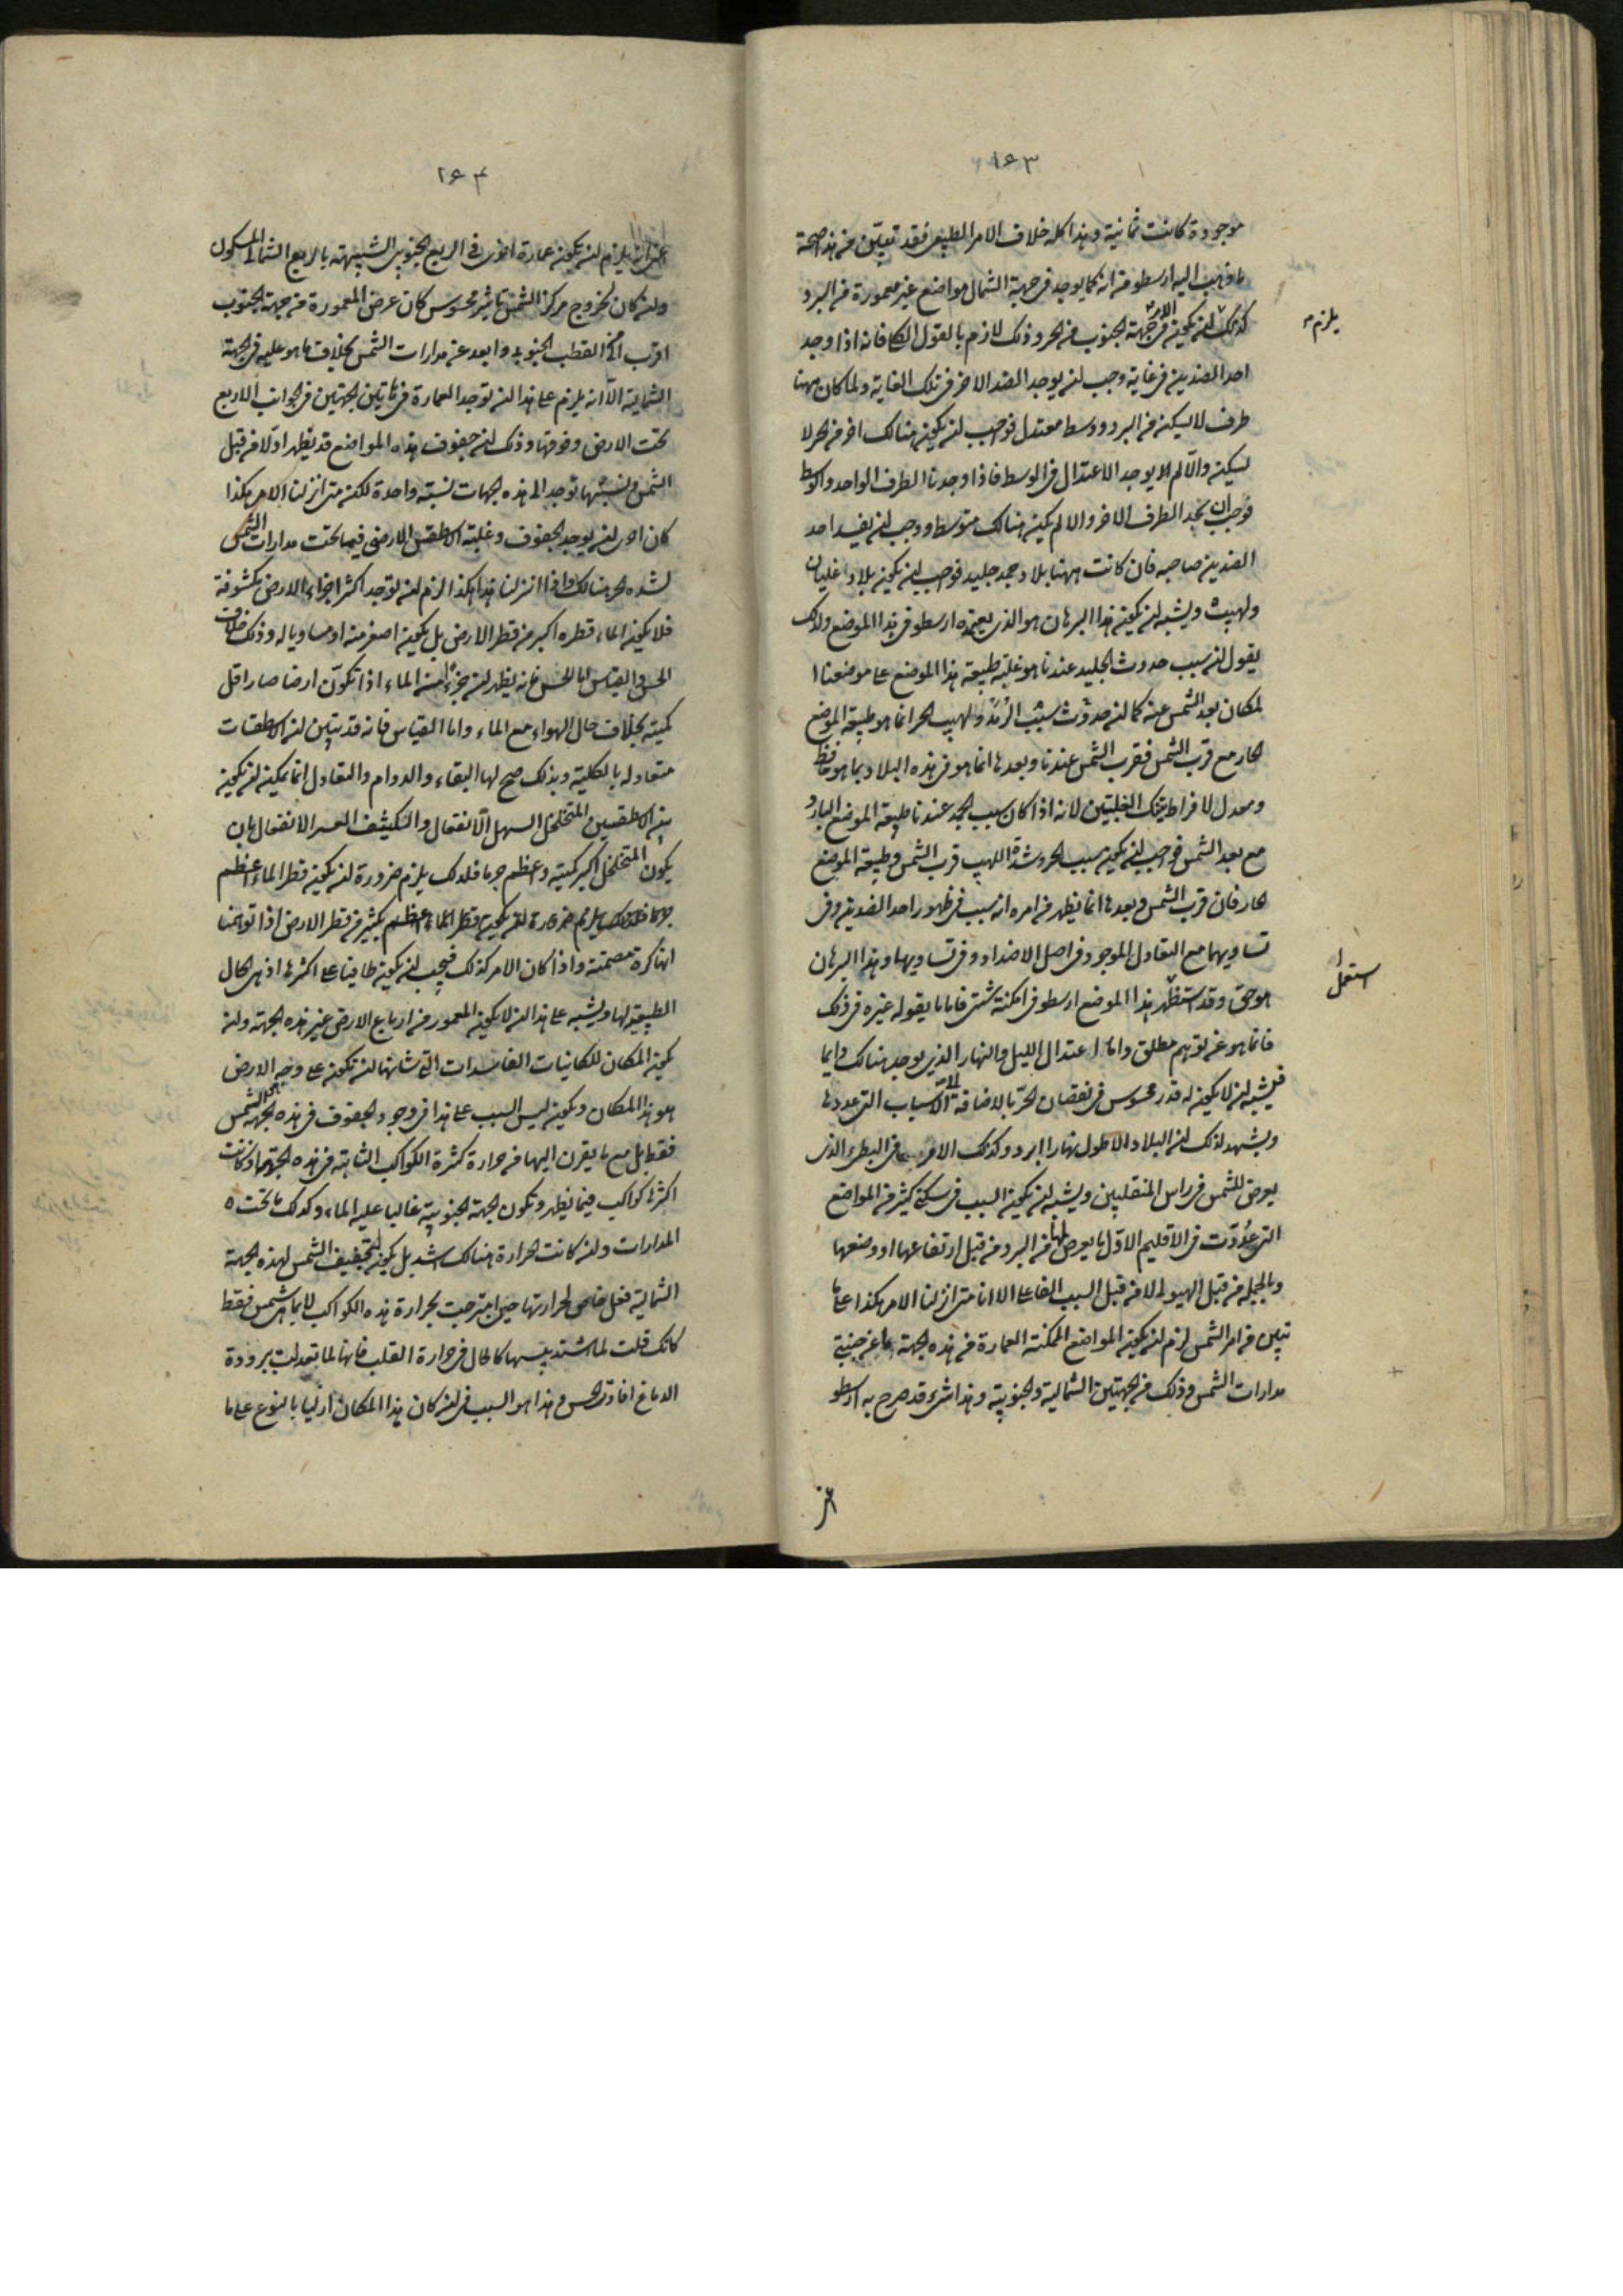 ١٦٣
موجودة كانت ثمانية وهذا كله خلاف الامر الطبيعى فقد تبين من هذا صحة
ما ذهب اليه ارسطو من انه كما يوجد فى جهة الشمال مواضع غير معمورة من البرد
كذلك يلزم ان يكون الامر فى جهة الجنوب من الحر وذلك لازم بالقول الكلى فانه اذا وجد
احد الضدين فى غاية وجب ان يوجد الضد الاخر فى تلك الغاية ولما كان ههنا
طرف لا يسكن من البرد ووسط معتدل فواجب ان يكون هنالك اخر من الحر لا
يسكن والا لم يوجد الاعتدال فى الوسط فاذا وجدنا الطرف الواحد والوسط
فوجب ان نجد الطرف الاخر والا لم يكن هنالك متوسط ووجب ان يفسد احد
الضدين صاحبه فان كانت ههنا بلاد جمد جليد فواجب ان يكون بلاد غليان
ولهيب ويشبه ان يكون هذا البرهان هو الذى يعتمده ارسطو فى هذا الموضع ولذلك
يقول ان سبب حدوث الجليد عندنا هو غلبة طبيعة هذا الموضع على موضعنا
لمكان بعد الشمس عنه كما ان حدوث ولهيب الحر انما هو طبيعة الموضع
الحار مع قرب الشمس فقرب الشمس عندنا وبعدها انما هو فى هذه البلاد بما هو حافظ
ومعدل لافراط تينك الغلبتين لانه اذا كان سبب الجمد عندنا طبيعة الموضع البارد
مع بعد الشمس فواجب ان يكون سبب الحر وشدة اللهيب قرب الشمس وطبيعة الموضع
الحار فان قرب الشمس وبعدها انما يظهر من امره انه سبب فى ظهور احد الضدين وفى
تساويهما مع التعادل الموجود فى اصل الاضداد وفى تساويها وهذا البرهان
هو حق وقد استظهر هذا الموضع ارسطو فى امكنة شتى فاما ما يقوله غيره فى ذلك
استعمل
فانما هو عن توهم مطلق واما اعتدال الليل والنهار الذى يوجد هنالك دايما
فيشبه ان لا يكون له قدر محسوس فى نقصان الحر بالاضافة الى الاسباب التى عددها
ويشهد لذلك ان البلاد الاطول نهارا ابرد وكذلك الامر فى البطء الذى
يعرض للشمس فى راس المنقلبين ويشبه ان يكون السبب فى سكنى كثير من المواضع
التى عدّت فى الاقليم الاول ما يعرض لها من البرد من قبل ارتفاعها او وضعها
وبالجملة من قبل الهيولى لا من قبل السبب الفاعل الا انا متى انزلنا الامر هكذا على ما
تبين من امر الشمس لزم ان يكون المواضع الممكنة العمارة من هذه الجهة ما عن جنبتى
مدارات الشمس وذلك من الجهتين الشمالية والجنوبية وهذا شىء قد صرح به ارسطو
١٦٤
اعنى انه يلزم ان يكون عمارة اخرى فى الربع الجنوبى الشبيهة بالربع الشمالى المسكون
وان كان لخروج مركز الشمس تاثير محسوس كان عرض المعمورة من جهة الجنوب
اقرب الى القطب الجنوبى وابعد عن مدارات الشمس بخلاف ما هو عليه فى الجهة
الشمالية الا انه يلزم على هذا ان توجد العمارة فى هاتين الجهتين فى الجوانب الاربع
تحت الارض وفوقها وذلك ان جفوف هذه المواضع قد يظهر اولا من قبل
الشمس ونسبتها توجد الى هذه الجهات نسبة واحدة لكن متى انزلنا الامر هكذا
كان احرى ان يوجد الجفوف وغلبة الاسطقس الارضى فيما تحت مدارات الشمس
لشدة الحر هنالك واذا انزلنا هذا هكذا لزم ان توجد اكثر اجزاء الارض مكشوفة
فلا يكون الماء قطره اكبر من قطر الارض بل يكون اصغر منه او مساويا له وذلك خلاف
الحس والقياس اما الحس فانه يظهر ان جزءا من الماء اذا تكون ارضا صار اقل
كمية بخلاف حال الهواء مع الماء واما القياس فانه قد تبين ان الاسطقسات
متعادلة بالكلية وبذلك صح لها البقاء والدوام والتعادل انما يمكن ان يكون
بين الاسطقسين المتخلخل السهل الانفعال والكثيف العسر الانفعال بان
يكون المتخلخل اكبر كمية واعظم جرما فلذلك يلزم ضرورة ان يكون قطر الماء اعظم
جرما فلذلك يلزم ضرورة ان يكون قطر الماء اعظم بكثير من قطر الارض اذا توهمنا
انها كرة مصمتة واذا كان الامر كذلك فيجب ان يكون طافيا على اكثرها اذ هى الحال
الطبيعية لها ويشبه على هذا ان لا يكون المعمور من ارباع الارض غير هذه الجهة وان
يكون المكان للكائنات الفاسدات التى شانها ان تكون على وجه الارض
هو هذا المكان ويكون ليس السبب على هذا فى وجود الجفوف فى هذه الجهة الشمس
فقط بل مع ما يقرن اليها من حرارة كثرة الكواكب الثابتة فى هذه الجهة اذ كانت
اكثرها كواكب فيما يظهر وتكون الجهة الجنوبية غالبا عليه الماء وكذلك ما تحت
المدارات وان كانت الحرارة هنالك اشد بل يكون لتجفيف الشمس لهذه الجهة
الشمالية فعل خاص لحرارتها حين امتزجت بحرارة هذه الكواكب لا بما هى شمس فقط
كانك قلت لما اشتد يبسها كالحال فى حرارة القلب فانها لما تعدلت ببرودة
الدماغ افادت الحس وهذا هو السبب فى ان كان هذا المكان ازليا بالنوع على ما